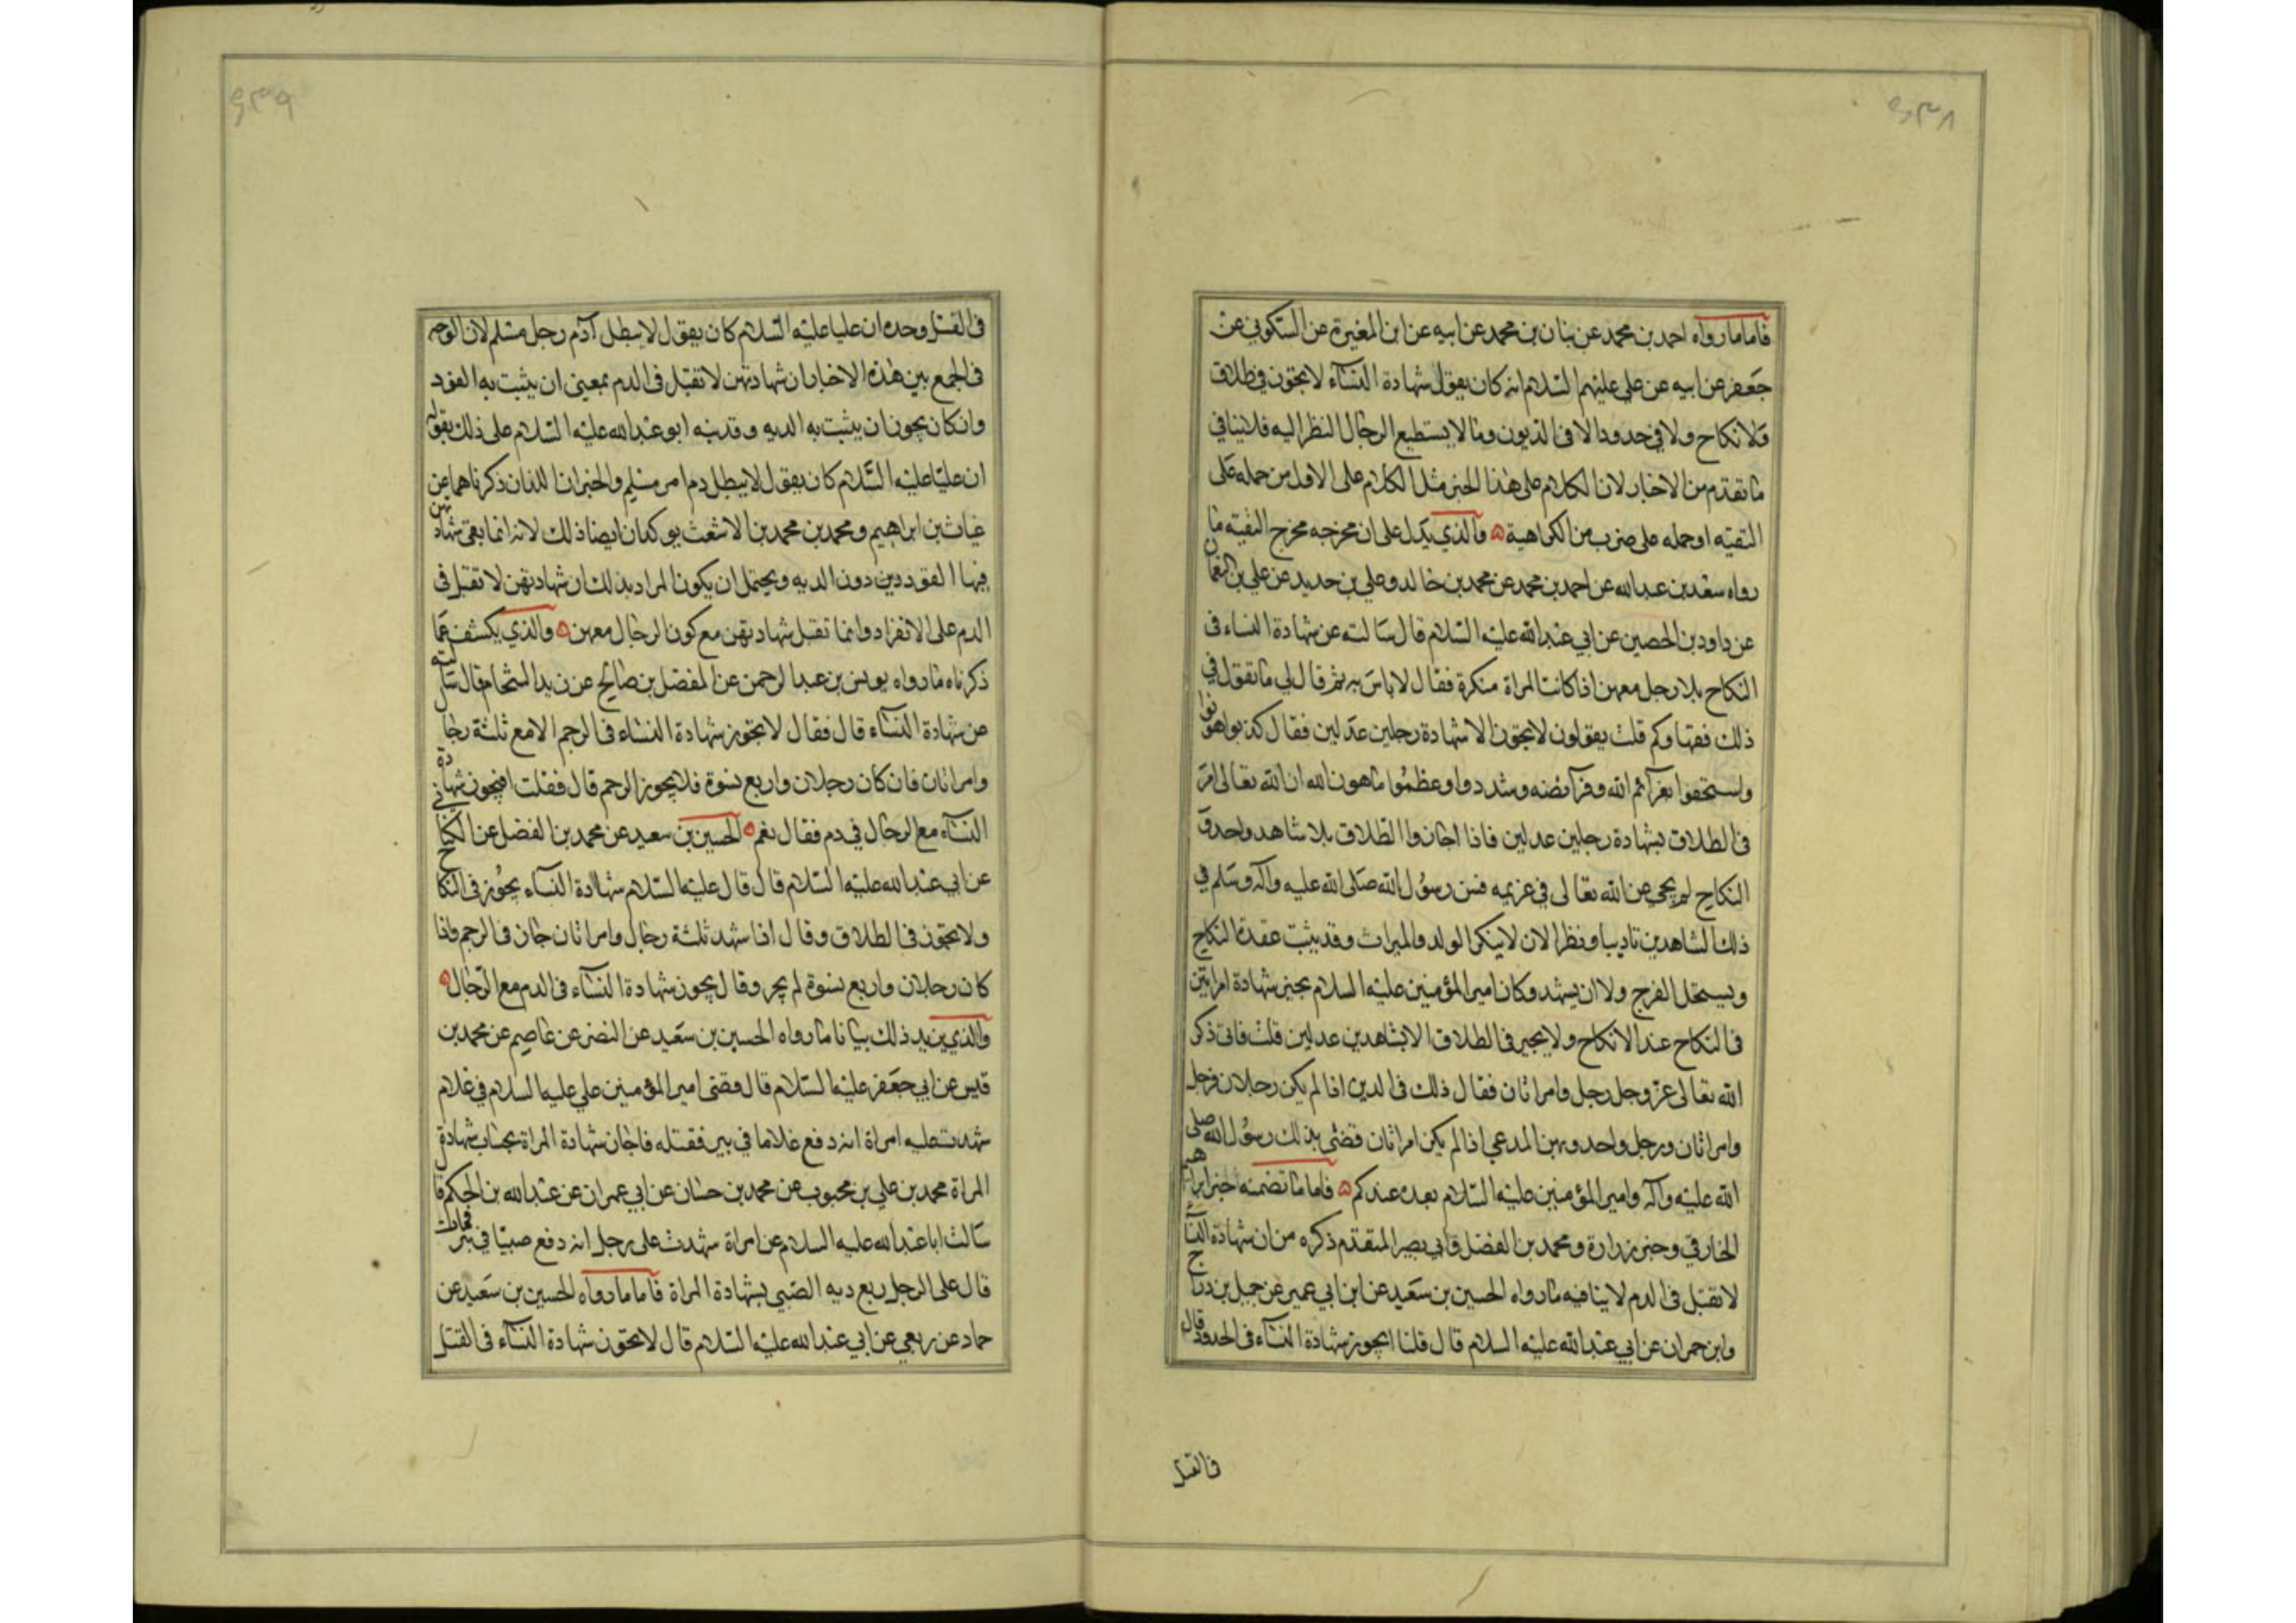 ۶۳۸
فاما ما رواه احمد بن محمد عن بنان بن محمد عن ابيه عن ابن المغيرة عن السكوني عن
جعفر عن ابيه عن علي عليهم السلام انه كان يقول شهادة النسآء لا تجوز في طلاق
ولا نكاح ولا في حدود الا في الديون وما لا يستطيع الرجال النظر اليه فلا ينافي
ما تقدم من الاخبار لان الكلام على هذا الخبر مثل الكلام على الاول من حمله على
التقيه او حمله على ضرب من الكراهية ه والذي يدل على ان مخرجه مخرج التقيه ما
رواه سعد بن عبد الله عن احمد بن محمد عن محمد بن خالد وعلي بن حديد عن علي بن النعمان
عن داود بن الحصين عن ابي عبد الله عليه السلام قال سالته عن شهادة النساء في
النكاح بلا رجل معهن اذا كانت المراة منكرة فقال لا باس به ثم قال لي ما تقول في
ذلك فقهاوكم قلت يقولون لا تجوز الا شهادة رجلين عدلين فقال كذبوا هونوا
واستخفوا بعزآئم الله وفرآئضه وشددوا وعظموا ما هون الله ان الله تعالى امر
في الطلاق بشهادة رجلين عدلين فاذا اجازوا الطلاق بلا شاهد واحد و
النكاح لم يجئ عن الله تعالى في عزيمه فسن رسول الله صلى الله عليه وآله وسلم في
ذلك الشاهدين تاديبا ونظرا لان لا ينكر الولد والميراث وقد يثبت عقدة النكاح
ويستحل الفرج ولا ان يشهد وكان امير المؤمنين عليه السلام يجيز شهادة امراتين
في النكاح عند الانكاح ولا يجيز في الطلاق الا شاهدين عدلين قلت فانى ذكر
الله تعالى عز وجل رجل وامراتان فقال ذلك في الدين اذا لم يكن رجلان فرجل
وامراتان ورجل واحد ويمين المدعي اذا لم يكن امراتان قضى بذلك رسول الله صلى
الله عليه وآله وامير المؤمنين عليه السلام بعده عندكم ه فاما ما تضمنه خبر ابراهيم
الخارقي وخبر زرارة ومحمد بن الفضل وابي بصير المتقدم ذكره من ان شهادة النسآ
لا تقبل في الدم لا ينافيه ما رواه الحسين بن سعيد عن ابن ابي عمير عن جميل بن دراج
وابن حمران عن ابي عبد الله عليه السلام قال قلنا ايجوز شهادة النسآء في الحدود قال
في القتل
۶۳۹
في القتل وحده ان عليا عليه السلام كان يقول لا يبطل آدم رجل مسلم لان الوجه
في الجمع بين هذه الاخبار ان شهادتهن لا تقبل في الدم بمعنى ان يثبت به القود
وان كان يجوز ان يثبت به الديه وقد نبه ابو عبد الله عليه السلام على ذلك بقوله
ان عليا عليه السلام كان يقول لا يبطل دم امرء مسلم والخبران اللذان ذكرناهما عن
غياث بن ابراهيم ومحمد بن محمد بن الاشعث يوكدان ايضا ذلك لانه انما بقى شهادتهن
فيها القود دون الديه ويحتمل ان يكون المراد بذلك ان شهادتهن لا تقبل في
الدم على الانفراد وانما تقبل شهادتهن مع كون الرجال معهن ه والذي يكشف عما
ذكرناه ما رواه يونس بن عبد الرحمن عن المفضل بن صالح عن زيد الشحام قال سالته
عن شهادة النسآء قال فقال لا تجوز شهادة النساء في الرجم الا مع ثلثة رجال
وامراتان فان كان رجلان واربع نسوة فلا يجوز الرجم قال فقلت افيجوز شهادة
النسآء مع الرجال في دم فقال نعم ه الحسين بن سعيد عن محمد بن الفضل عن الكناني
عن ابي عبد الله عليه السلام قال قال عليه السلام شهادة النسآء يجوز في النكاح
ولا تجوز في الطلاق وقال اذا شهد ثلثة رجال وامراتان جاز في الرجم واذا
كان رجلان واربع نسوة لم يجز وقال يجوز شهادة النسآء في الدم مع الرجال ه
والذي يزيد ذلك بيانا ما رواه الحسين بن سعيد عن النضر عن عاصم عن محمد بن
قيس عن ابي جعفر عليه السلام قال قضى امير المؤمنين علي عليه السلام في غلام
شهدت عليه امراة انه دفع غلاما في بير فقتله فاجاز شهادة المراة بحساب شهادة
المراة محمد بن علي بن محبوب عن محمد بن حسان عن ابي عمران عن عبد الله بن الحكم قا
سالت ابا عبد الله عليه السلام عن امراة شهدت على رجل انه دفع صبيا في بئر فمات
قال على الرجل ربع ديه الصبي بشهادة المراة فاما ما رواه الحسين بن سعيد عن
حماد عن ربعي عن ابي عبد الله عليه السلام قال لا تجوز شهادة النسآء في القتل